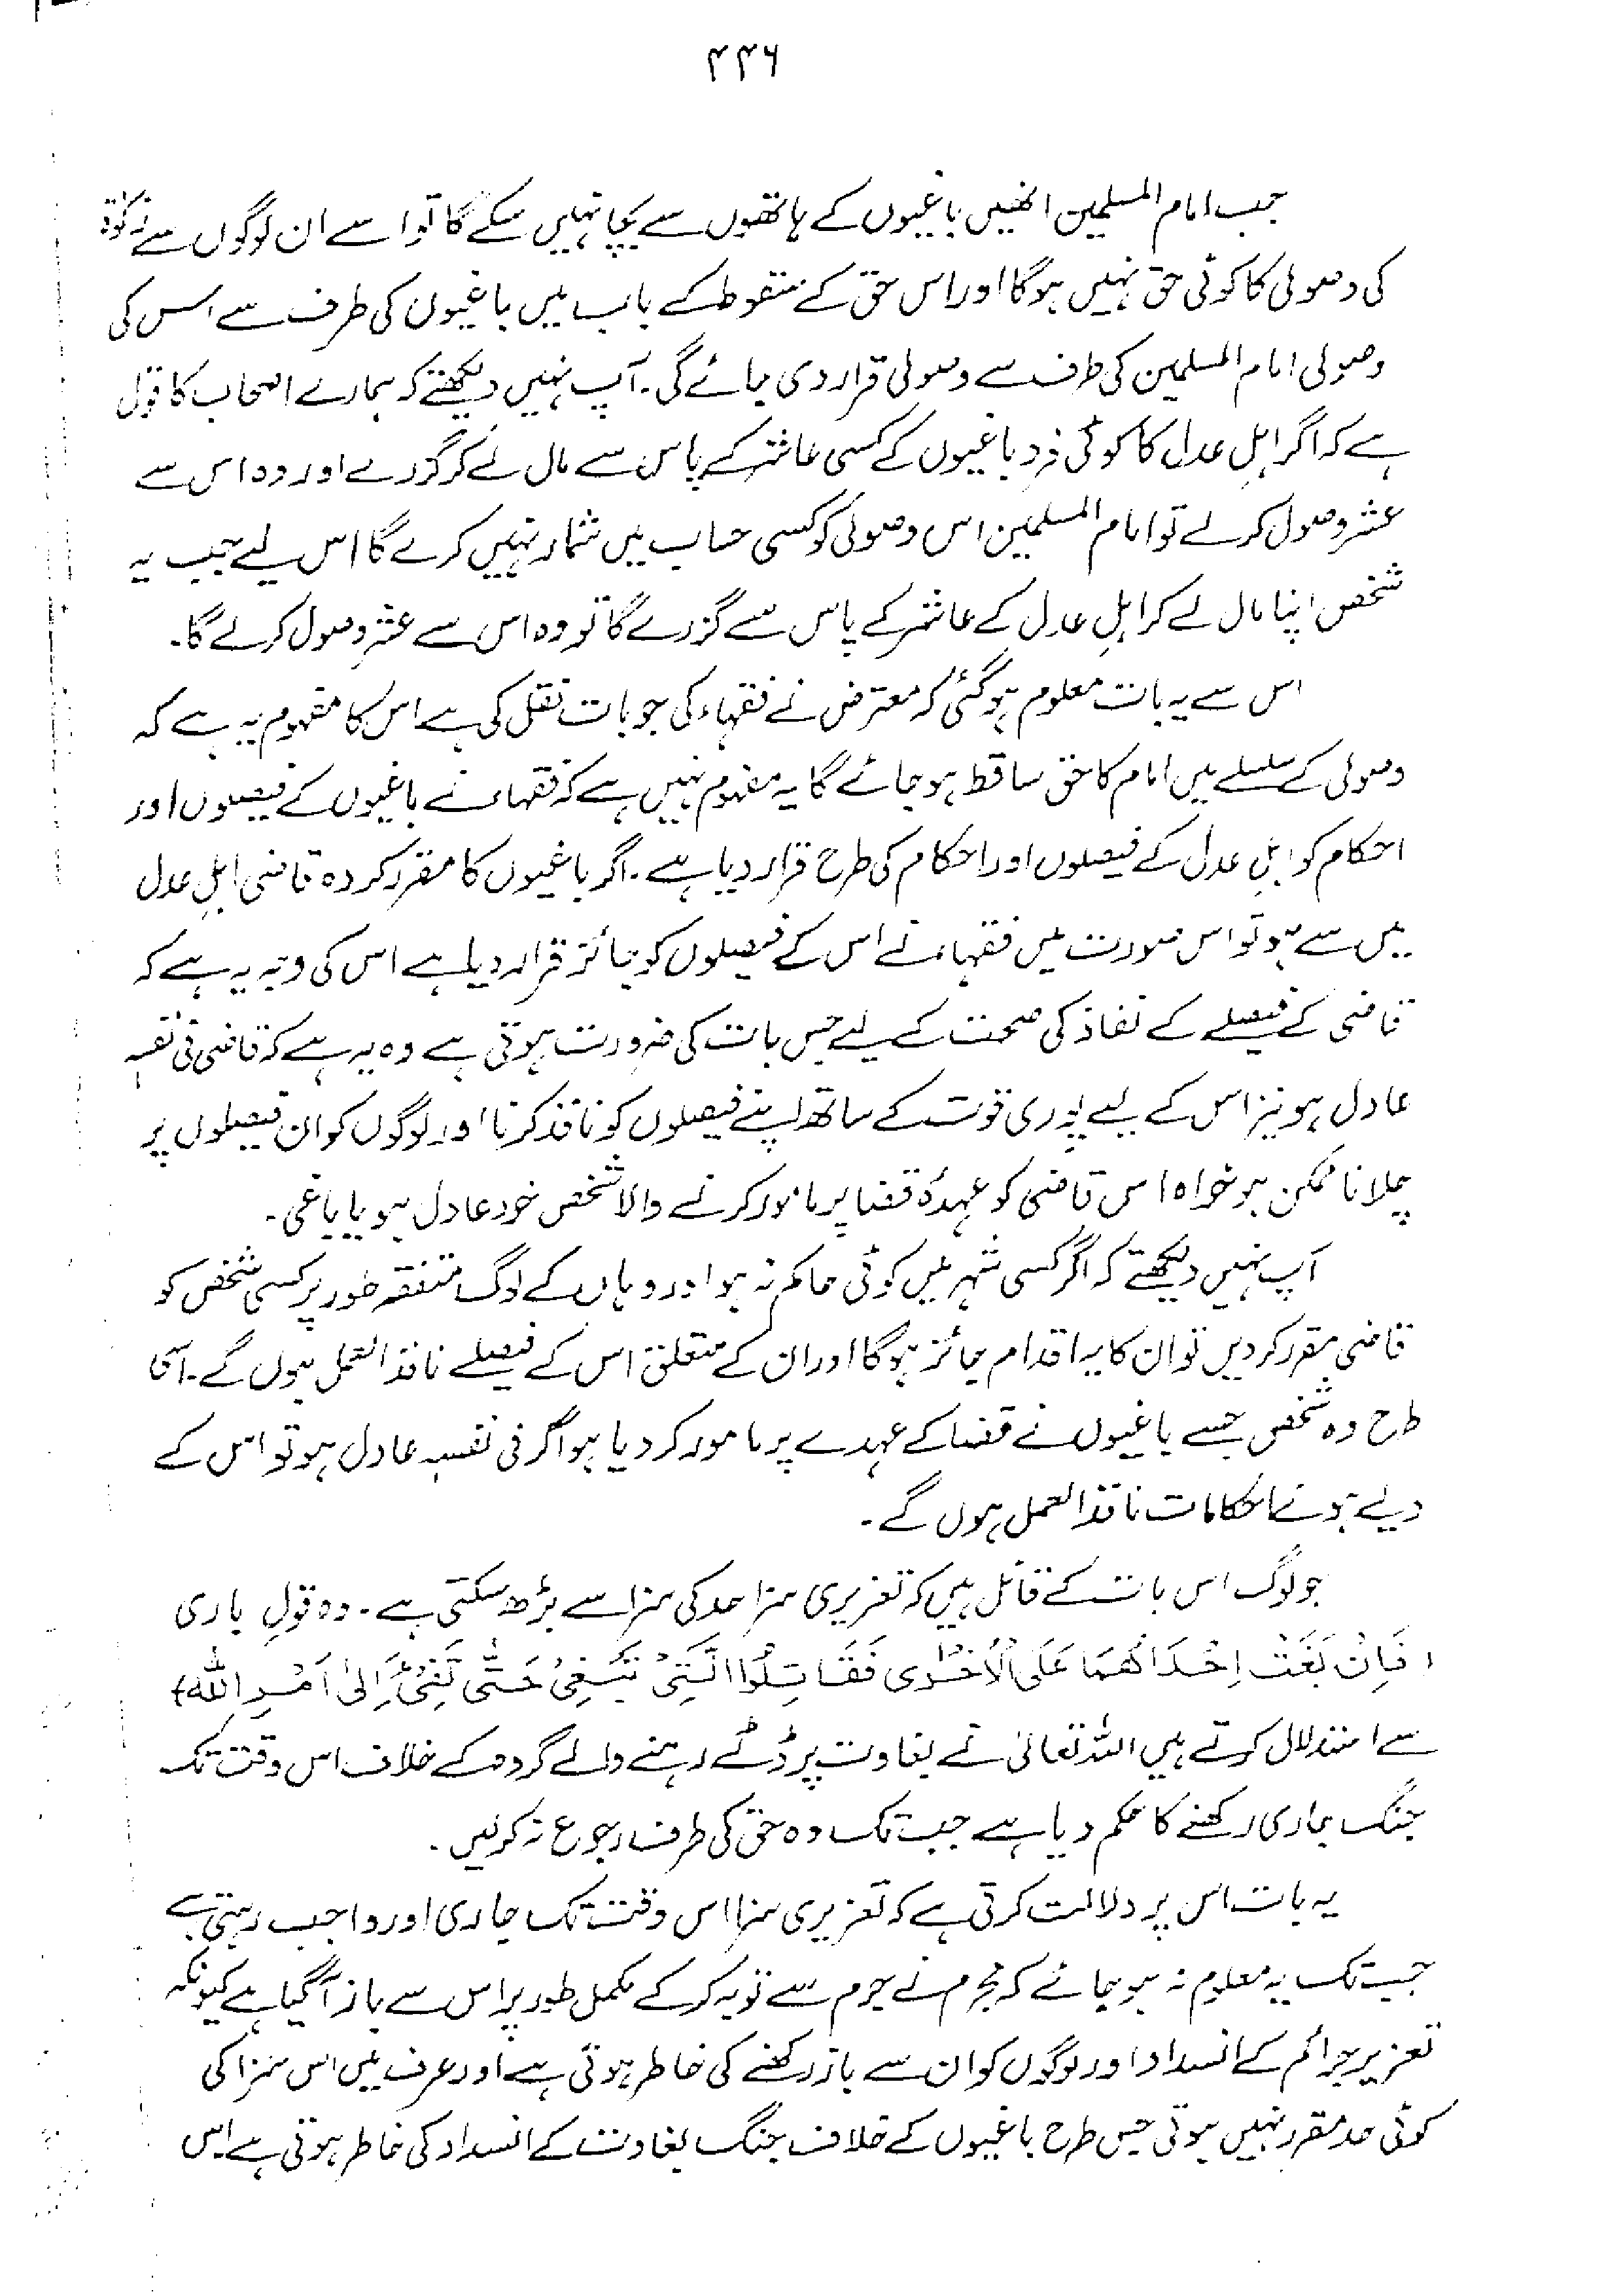 ۴۴۶
جب امام المسلمین انھیں باغیوں کے ہاتھوں سے بچا نہیں سکے گا تو اسے ان لوگوں سے زکوٰۃ
کی وصولی کا کوئی حق نہیں ہوگا اور اس حق کے سقوط کے باب میں باغیوں کی طرف سے اس کی
وصولی امام المسلمین کی طرف سے وصولی قرار دی جائے گی۔ آپ نہیں دیکھتے کہ ہمارے اصحاب کا قول
ہے کہ اگر اہلِ عدل کا کوئی فرد باغیوں کے کسی عاشر کے پاس سے مال لے کر گزرے اور وہ اس سے
عشر وصول کرلے تو امام المسلمین اس وصولی کو کسی حساب میں شمار نہیں کرے گا اس لیے جب یہ
شخص اپنا مال لے کر اہلِ عدل کے عاشر کے پاس سے گزرے گا تو وہ اس سے عشر وصول کرلے گا۔
اس سے یہ بات معلوم ہوگئی کہ معترض نے فقہاء کی جو بات نقل کی ہے اس کا مفہوم یہ ہے کہ
وصولی کے سلسلے میں امام کا حق ساقط ہو جائے گا یہ مفہوم نہیں ہے کہ فقہاء نے باغیوں کے فیصلوں اور
احکام کو اہلِ عدل کے فیصلوں اور احکام کی طرح قرار دیا ہے۔ اگر باغیوں کا مقرر کردہ قاضی اہلِ عدل
میں سے ہو تو اس صورت میں فقہاء نے اس کے فیصلوں کو جائز قرار دیا ہے اس کی وجہ یہ ہے کہ
قاضی کے فیصلے کے نفاذ کی صحت کے لیے جس بات کی ضرورت ہوتی ہے وہ یہ ہے کہ قاضی فی نفسہٖ
عادل ہو نیز اس کے لیے پوری قوت کے ساتھ اپنے فیصلوں کو نافذ کرنا اور لوگوں کو ان فیصلوں پر
چلانا ممکن ہو خواہ اس قاضی کو عہدۂ قضا پر مامور کرنے والا شخص خود عادل ہو یا باغی۔
آپ نہیں دیکھتے کہ اگر کسی شہر میں کوئی حاکم نہ ہو اور وہاں کے لوگ متفقہ طور پر کسی شخص کو
قاضی مقرر کردیں تو ان کا یہ اقدام جائز ہوگا اور ان کے متعلق اس کے فیصلے نافذ العمل ہوں گے۔ اسی
طرح وہ شخص جسے باغیوں نے قضا کے عہدے پر مامور کردیا ہو اگر فی نفسہٖ عادل ہو تو اس کے
دیے ہوئے احکامات نافذ العمل ہوں گے۔
جو لوگ اس بات کے قائل ہیں کہ تعزیری سزا حد کی سزا سے بڑھ سکتی ہے۔ وہ قولِ باری
(فَاِنْ بَغَتْ اِحْدَاهُمَا عَلَى الْاُخْرٰى فَقَاتِلُوا الَّتِىْ تَبْغِىْ حَتّٰى تَفِىْٓءَ اِلٰٓى اَمْرِ اللّٰهِ)
سے استدلال کرتے ہیں اللہ تعالیٰ نے بغاوت پر ڈٹے رہنے والے گروہ کے خلاف اس وقت تک
جنگ جاری رکھنے کا حکم دیا ہے جب تک وہ حق کی طرف رجوع نہ کرلیں۔
یہ بات اس پر دلالت کرتی ہے کہ تعزیری سزا اس وقت تک جاری اور واجب رہتی ہے
جب تک یہ معلوم نہ ہو جائے کہ مجرم نے جرم سے توبہ کرکے مکمل طور پر اس سے باز آگیا ہے کیونکہ
تعزیر جرائم کے انسداد اور لوگوں کو ان سے باز رکھنے کی خاطر ہوتی ہے اور عرف میں اس سزا کی
کوئی حد مقرر نہیں ہوتی جس طرح باغیوں کے خلاف جنگ بغاوت کے انسداد کی خاطر ہوتی ہے اس